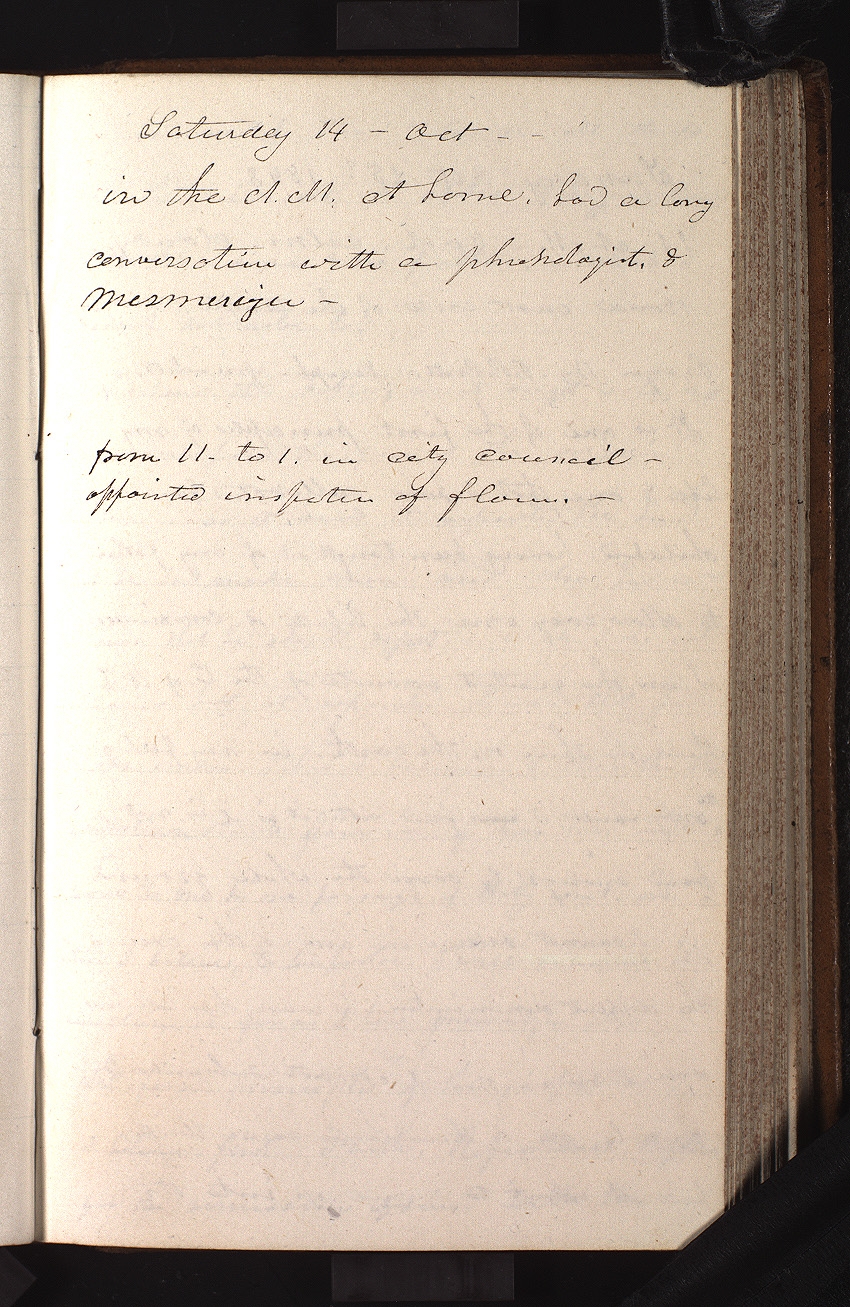 Saturday 14 - Oct - -
in the A.M. at home. had a long
conversation with a phrenologist, &
Mesmerizer -
from 11- to 1. in city council -
appointed inspector of flour. -